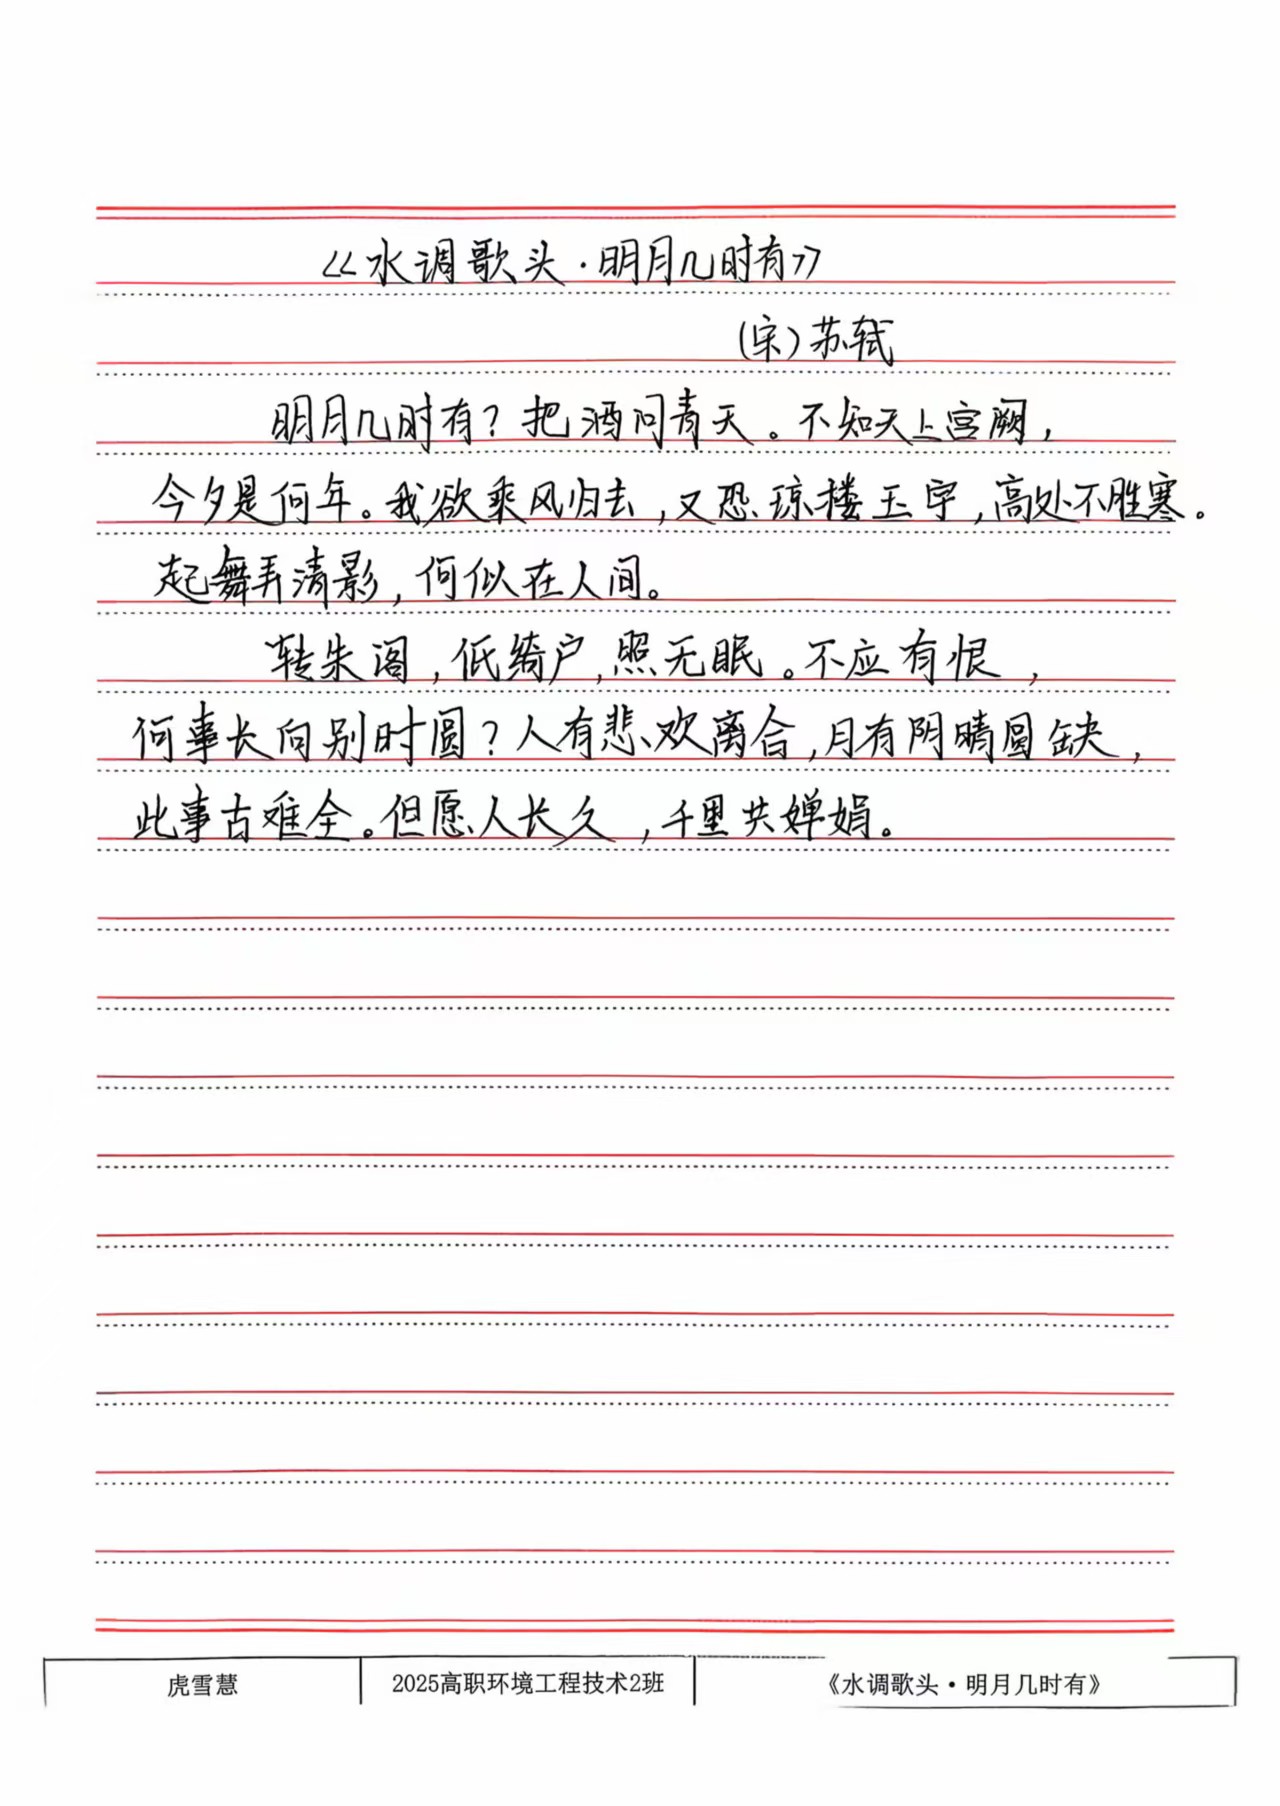 《水调歌头·明月几时有》
(宋)苏轼
明月几时有?把酒问青天。不知天上宫阙,
今夕是何年。我欲乘风归去,又恐琼楼玉宇,高处不胜寒。
起舞弄清影,何似在人间。
转朱阁,低绮户,照无眠。不应有恨,
何事长向别时圆?人有悲欢离合,月有阴晴圆缺,
此事古难全。但愿人长久,千里共婵娟。
虎雪慧 2025高职环境工程技术2班 《水调歌头·明月几时有》